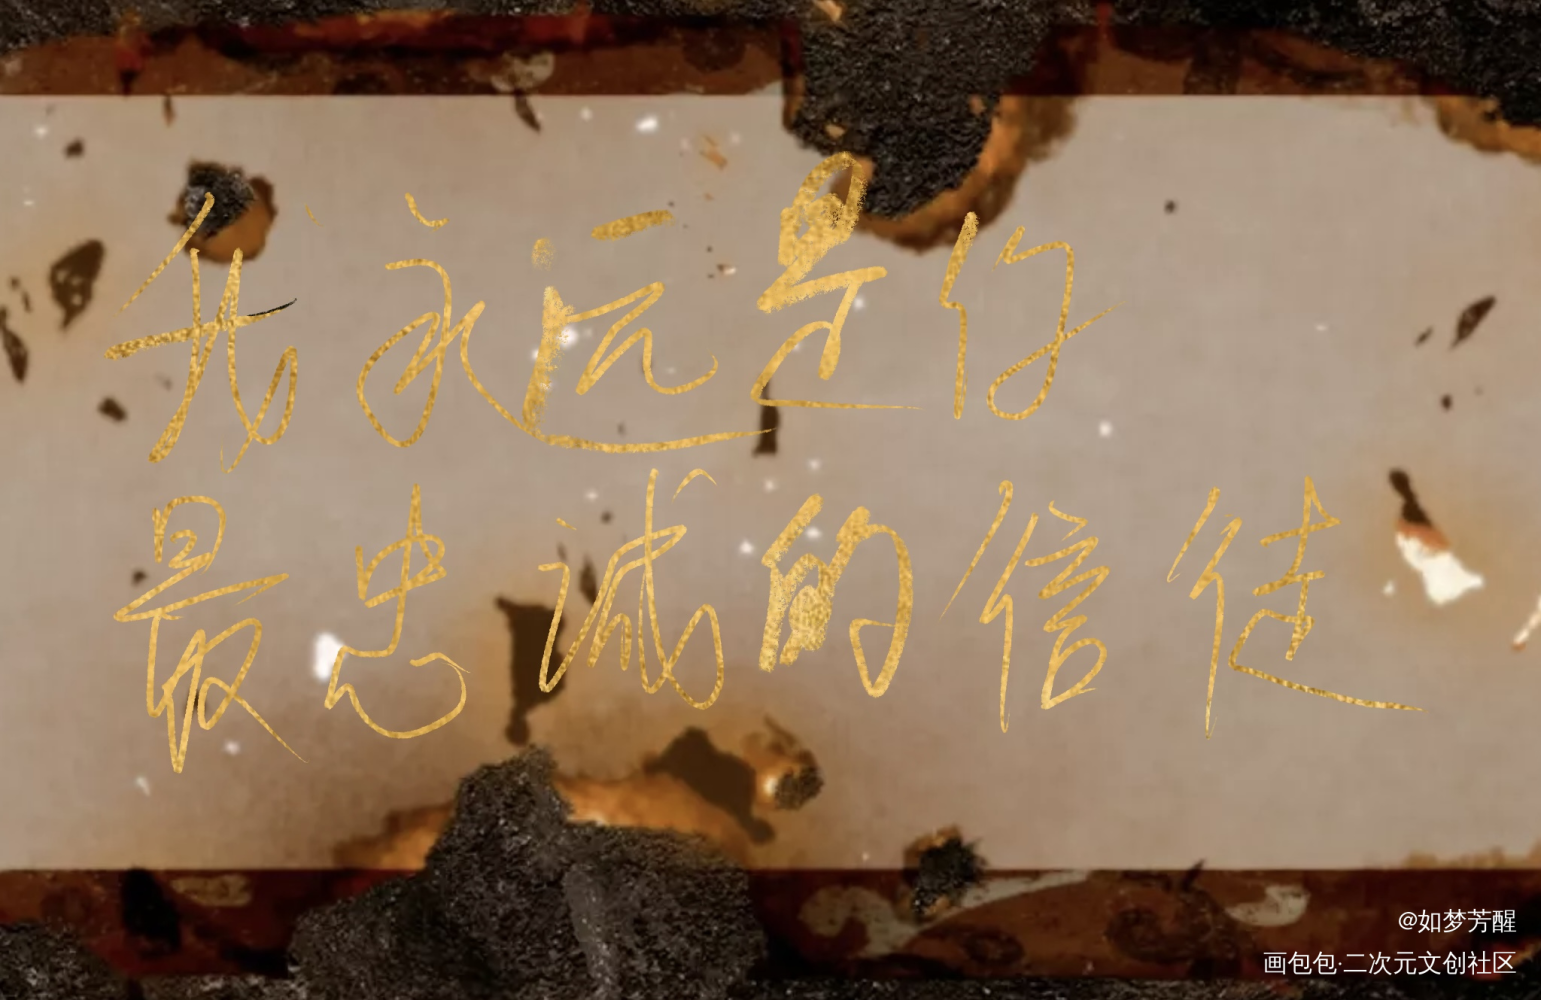 我永远是你
最忠诚的信徒
@如梦芳醒
画包包·二次元文创社区